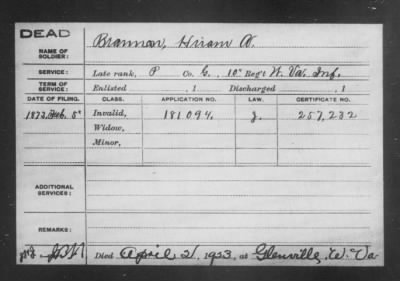 DEAD
NAME OF SOLDIER: Brannon, Hiram A.
SERVICE: Late rank, P Co. G, 10" Reg't W. Va. Inf.
TERM OF SERVICE: Enlisted , 1 Discharged , 1
DATE OF FILING. CLASS. APPLICATION NO. LAW. CERTIFICATE NO.
Feb. 5" Invalid, 181094. 257,232
Widow,
Minor,
ADDITIONAL SERVICES:
REMARKS:
Died April 21, 1923, at Glenville, W. Va